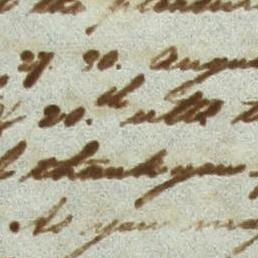 the pleasure
27. 30. Augu
20.th ulto t
thank you f
. As you may